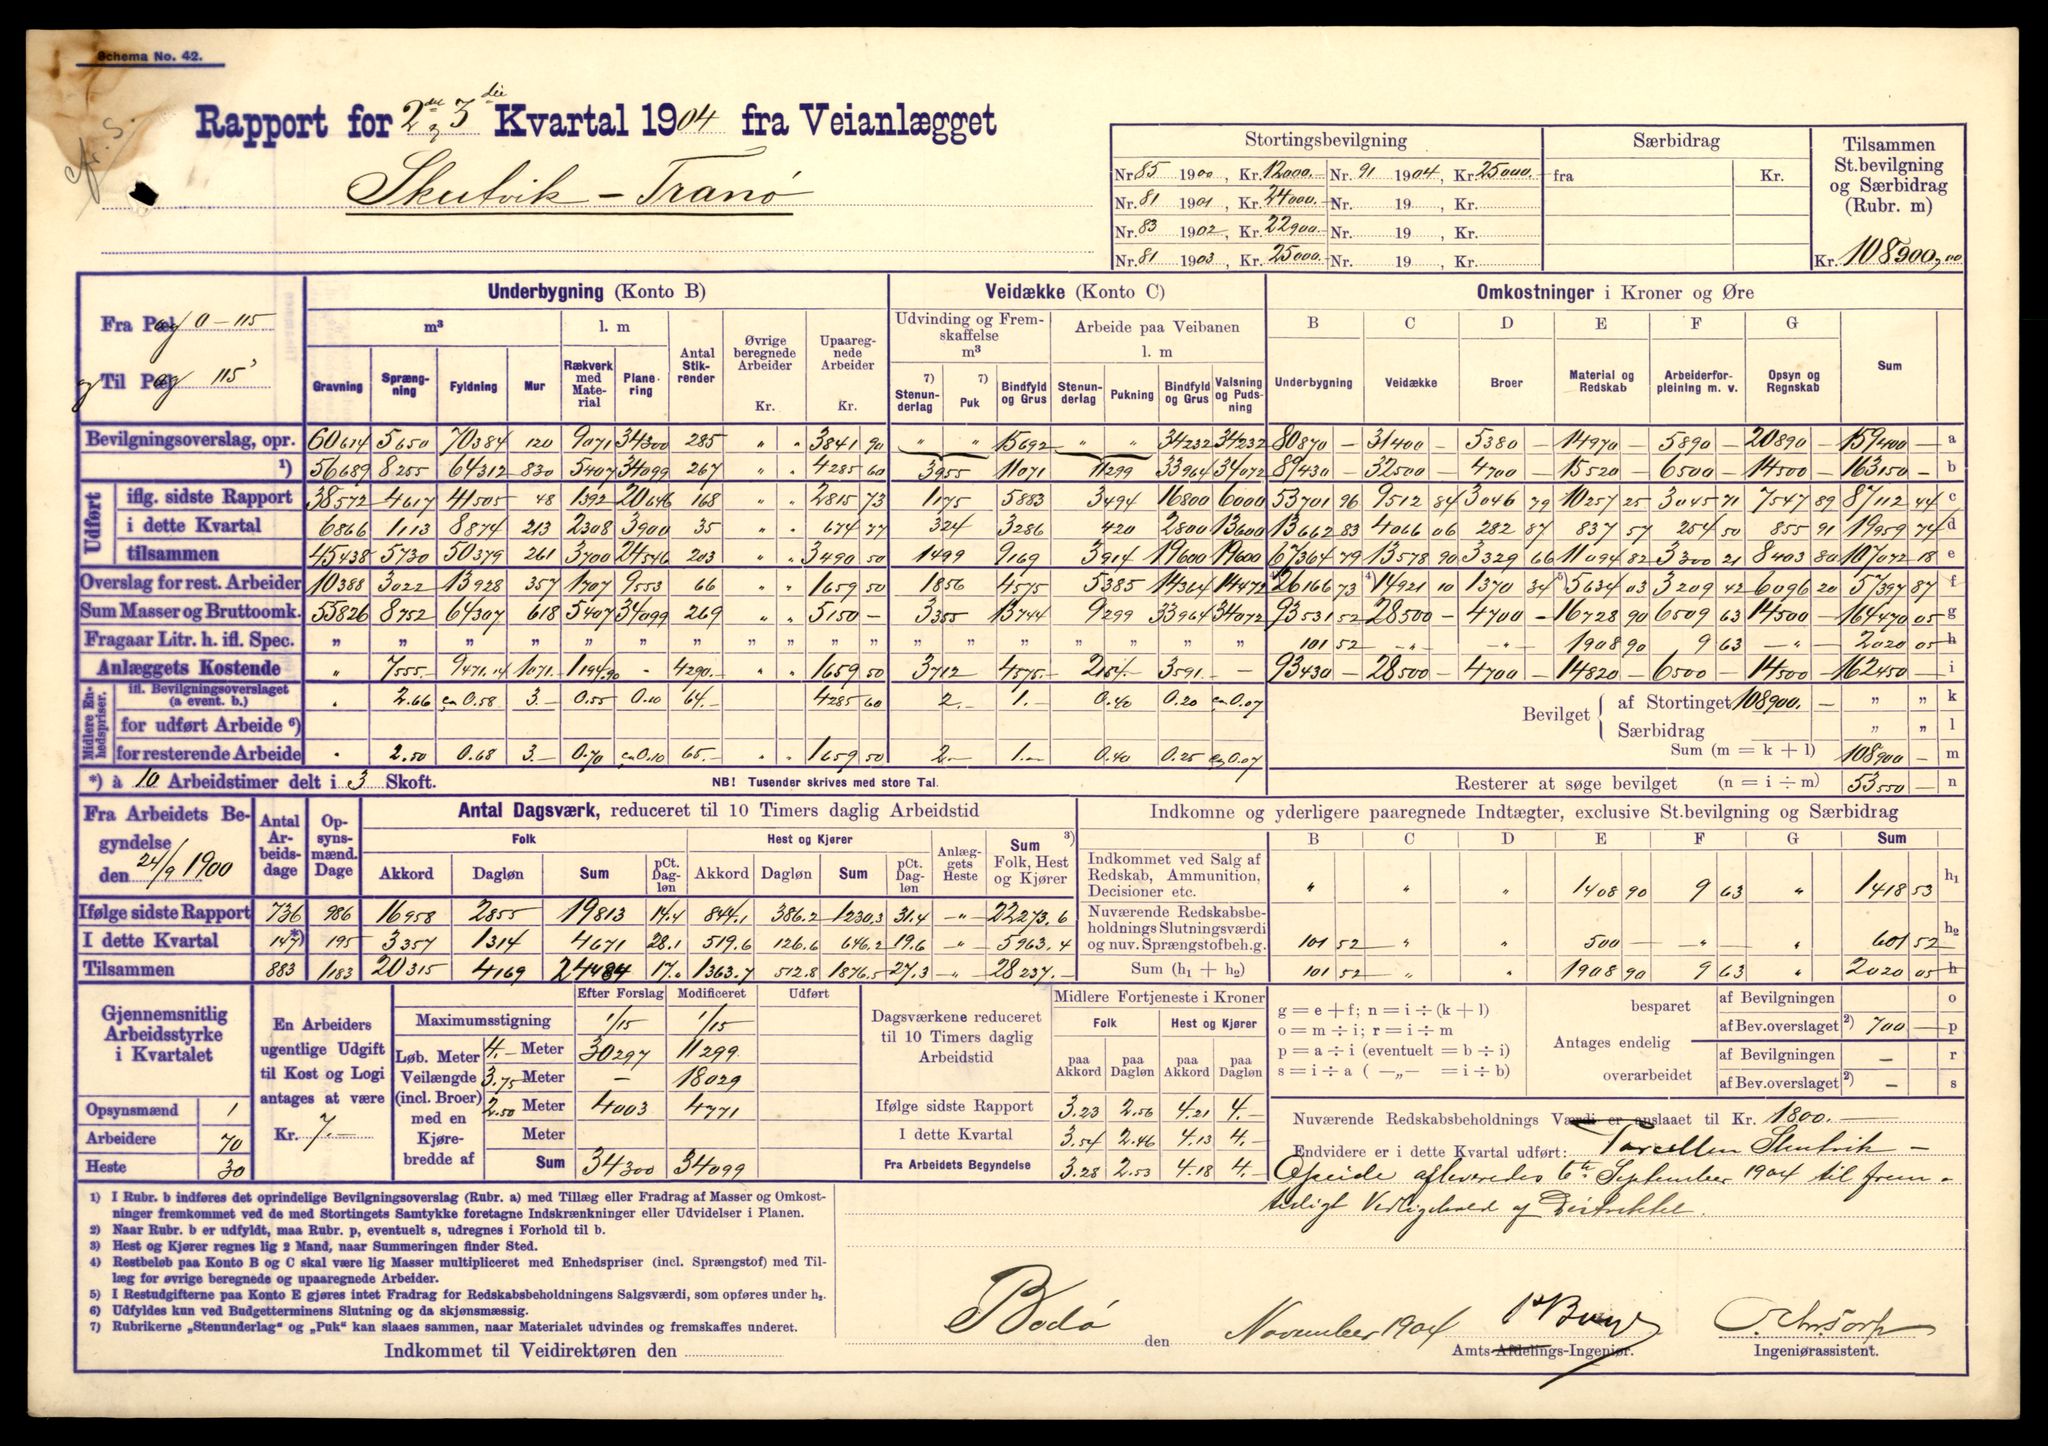 Schema No. 42.
Rapport for 2det & 3die Kvartal 1904 fra Veianlægget
Skutvik – Tranö
Stortingsbevilgning Særbidrag Tilsammen St.bevilgning og Særbidrag (Rubr. m)
Nr. 85 1900, Kr. 12000.- Nr. 91 1904, Kr. 25000.- fra Kr.
Nr. 81 1901, Kr. 24000.- Nr. 19 , Kr.
Nr. 83 1902, Kr. 22900.- Nr. 19 , Kr.
Nr. 81 1903, Kr. 25000.- Nr. 19 , Kr. Kr. 108900,00
Fra Pæl 0 – 115
Til Pæl 115
Underbygning (Konto B) Veidække (Konto C) Omkostninger i Kroner og Øre
m³ l. m Antal Stikrender Øvrige beregnede Arbeider Kr. Upaaregnede Arbeider Kr. Udvinding og Fremskaffelse m³ Arbeide paa Veibanen l. m B C D E F G Sum
Gravning Sprængning Fyldning Mur Rækverk med Materiale Planering 7) Stenunderlag 7) Puk Bindfyld og Grus Stenunderlag Pukning Bindfyld og Grus Valsning og Pudsning Underbygning Veidække Broer Material og Redskab Arbeiderforpleining m. v. Opsyn og Regnskab
Bevilgningsoverslag, opr. 60614 5650 70384 120 9071 34300 285 " " 3841 90 " " 15692 " " 34232 34232 80870 – 31400 – 5380 – 14970 – 5890 – 20890 – 159400 – a
1) 56689 8255 64312 830 5407 34099 267 " " 4285 60 3955 11071 11299 33964 34072 89430 – 32500 – 4700 – 15520 – 6500 – 14500 – 163150 – b
Udført
iflg. sidste Rapport 38572 4617 41505 48 1392 20646 168 " " 2815 73 1175 5883 3494 16800 6000 53701 96 9512 84 3046 79 10257 25 3045 71 7547 89 87112 44 c
i dette Kvartal 6866 1113 8874 213 2308 3900 35 " " 674 77 324 3286 420 2800 13600 13662 83 4066 06 282 87 837 57 254 50 855 91 19959 74 d
tilsammen 45438 5730 50379 261 3700 24546 203 " " 3490 50 1499 9169 3914 19600 19600 67364 79 13578 90 3329 66 11094 82 3300 21 8403 80 107072 18 e
Overslag for rest. Arbeider 10388 3022 13928 357 1707 9553 66 " " 1659 50 1856 4575 5385 14364 14472 4) 26166 73 4) 14921 10 1370 34 5) 5634 03 3209 42 6096 20 57397 87 f
Sum Masser og Bruttoomk. 55826 8752 64307 618 5407 34099 269 " " 5150 – 3355 13744 9299 33964 34072 93531 52 28500 – 4700 – 16728 90 6509 63 14500 – 164470 05 g
Fragaar Litr. h. ifl. Spec. " " " " " " " " " " " " " " " " 101 52 " " 1908 90 9 63 – " – 2020 05 h
Anlæggets Kostende " 7555.- 9471.04 1071.- 1194.90 - 4290.- " " 1659 50 3712 4575.- 2154.- 3591.- – 93430 – 28500 – 4700 – 14820 – 6500 – 14500 – 162450 – i
Midlere Enhedspriser.
ifl. Bevilgningsoverslaget (a event. b.) " 2.66 ca 0.58 3.- 0.55 0.10 64.- 4285 60 2.- 1.- 0.40 0.20 ca 0.07 Bevilget af Stortinget 108900. – " " k
for udført Arbeide 6) Særbidrag " " l
for resterende Arbeide " 2.50 0.68 3.- 0.70 ca 0.10 65.- " " 1659 50 2.- 1.- 0.40 0.25 ca 0.07 Sum (m = k + l) 108900 – m
*) à 10 Arbeidstimer delt i 3 Skoft. NB! Tusender skrives med store Tal. Resterer at søge bevilget (n = i ÷ m) 53550 – n
Fra Arbeidets Begyndelse den 24/9 1900
Antal Arbeidsdage Opsynsmænd. Dage
Antal Dagsværk, reduceret til 10 Timers daglig Arbeidstid
Folk Hest og Kjører Anlæggets Heste Sum 3) Folk, Hest og Kjører
Akkord Dagløn Sum pCt. Dagløn Akkord Dagløn Sum pCt. Dagløn
Ifølge sidste Rapport 736 986 16958 2855 19813 14.4 844.1 386.2 1230.3 31.4 –"– 22273.6
I dette Kvartal 147*) 195 3357 1314 4671 28.1 519.6 126.6 646.2 19.6 –"– 5963.4
Tilsammen 883 1183 20315 4169 24484 17.0 1363.7 512.8 1876.5 27.3 –"– 28237.–
Indkomne og yderligere paaregnede Indtægter, exclusive St.bevilgning og Særbidrag
B C D E F G Sum
Indkommet ved Salg af Redskab, Ammunition, Decisioner etc. " " " 1408 90 9 63 " 1418 53 h1
Nuværende Redskabsbeholdnings Slutningsværdi og nuv. Sprængstofbeh.g. 101 52 " " 500 – – " – " 601 52 h2
Sum (h1 + h2) 101 52 " " 1908 90 9 63 " 2020 05 h
Gjennemsnitlig Arbeidsstyrke i Kvartalet
Opsynsmænd 1
Arbeidere 70
Heste 30
En Arbeiders ugentlige Udgift til Kost og Logi antages at være Kr. 7.–
Efter Forslag Modificeret Udført
Maximumsstigning 1/15 1/15
Løb. Meter Veilængde (incl. Broer) med en Kjørebredde af
4.- Meter 30297 11299
3.75 Meter – 18029
2.50 Meter 4003 4771
Meter
Sum 34300 34099
Dagsværkene reduceret til 10 Timers daglig Arbeidstid
Midlere Fortjeneste i Kroner
Folk Hest og Kjører
paa Akkord paa Dagløn paa Akkord paa Dagløn
Ifølge sidste Rapport 3.23 2.56 4.21 4.-
I dette Kvartal 3.54 2.46 4.13 4.-
Fra Arbeidets Begyndelse 3.28 2.53 4.18 4.-
g = e + f; n = i ÷ (k + l)
o = m ÷ i; r = i ÷ m
p = a ÷ i (eventuelt = b ÷ i)
s = i ÷ a ( —„— = i ÷ b)
Antages endelig
besparet af Bevilgningen o
af Bev.overslaget 2) 700 – p
overarbeidet af Bevilgningen – r
af Bev.overslaget 2) – s
Nuværende Redskabsbeholdnings Værdi er anslaaet til Kr. 1800.–
Endvidere er i dette Kvartal udført: Parcellen Skutvik –
Opeide afleveredes 6te September 1904 til frem-
tidigt Vedligehold af Distriktet.
1) I Rubr. b indføres det oprindelige Bevilgningsoverslag (Rubr. a) med Tillæg eller Fradrag af Masser og Omkost-
ninger fremkommet ved de med Stortingets Samtykke foretagne Indskrænkninger eller Udvidelser i Planen.
2) Naar Rubr. b er udfyldt, maa Rubr. p, eventuelt s, udregnes i Forhold til b.
3) Hest og Kjører regnes lig 2 Mand, naar Summeringen finder Sted.
4) Restbeløb paa Konto B og C skal være lig Masser multipliceret med Enhedspriser (incl. Sprængstof) med Til-
læg for øvrige beregnede og upaaregnede Arbeider.
5) I Restudgifterne paa Konto E gjøres intet Fradrag for Redskabsbeholdningens Salgsværdi, som opføres under h2.
6) Udfyldes kun ved Budgetterminens Slutning og da skjønsmæssig.
7) Rubrikerne „Stenunderlag“ og „Puk“ kan slaaes sammen, naar Materialet udvindes og fremskaffes underet.
Indkommet til Veidirektøren den
Bodö den November 1904
Amts-Afdelings-Ingeniør.
Ingeniørassistent.